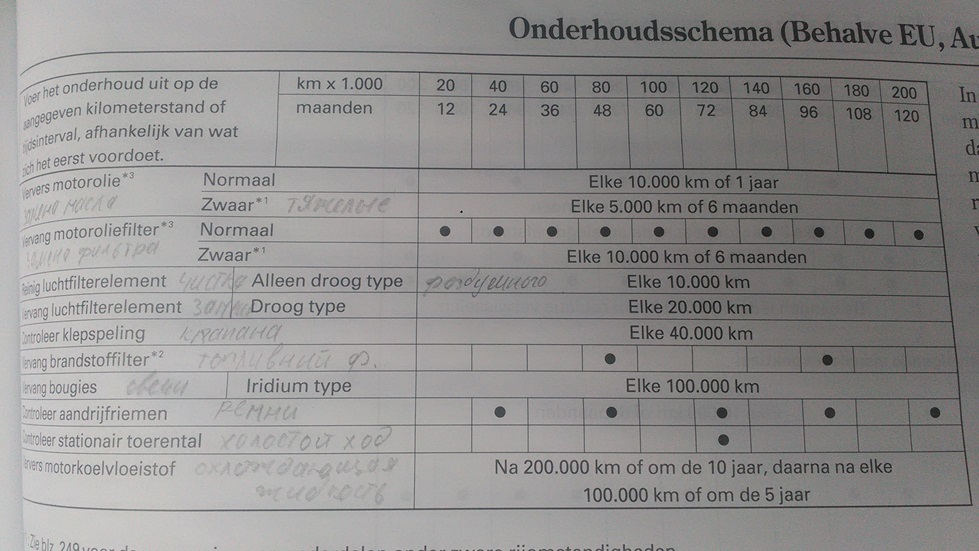 Onderhoudsschema (Behalve EU, Au
Voer het onderhoud uit op de
aangegeven kilometerstand of
tijdsinterval, afhankelijk van wat
zich het eerst voordoet.
km x 1.000 20 40 60 80 100 120 140 160 180 200
maanden 12 24 36 48 60 72 84 96 108 120
Ververs motorolie*3 Normaal Elke 10.000 km of 1 jaar
замена масла Zwaar*1 тяжелые Elke 5.000 km of 6 maanden
Vervang motoroliefilter*3 Normaal ● ● ● ● ● ● ● ● ● ●
замена фильтра Zwaar*1 Elke 10.000 km of 6 maanden
Reinig luchtfilterelement чистка Alleen droog type воздушного Elke 10.000 km
Vervang luchtfilterelement Droog type Elke 20.000 km
Controleer klepspeling клапана Elke 40.000 km
Vervang brandstoffilter*2 топливний ф. ● ●
Vervang bougies свечи Iridium type Elke 100.000 km
Controleer aandrijfriemen ремни ● ● ● ● ●
Controleer stationair toerental холостой ход ●
Ververs motorkoelvloeistof охлождающая Na 200.000 km of om de 10 jaar, daarna na elke
жидкость 100.000 km of om de 5 jaar
Zie blz. 249 voor de
In
m